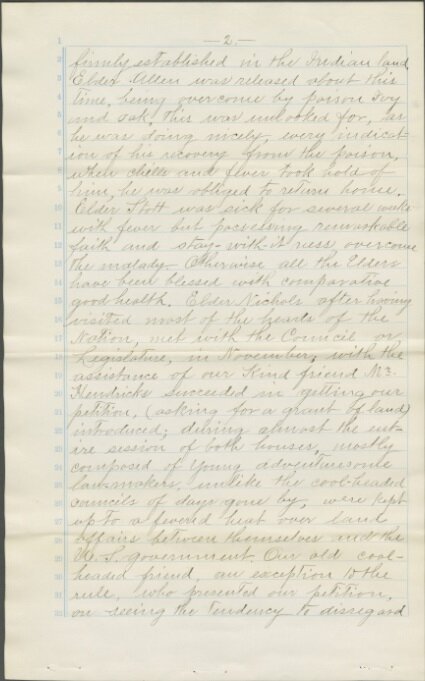 —2.—
firmly established in the Indian land
Elder Allen was released about this
time, being overcome by poison Ivy
and oak, this was unlooked for, as
he was doing nicely, every indicat-
ion of his recovery from the poison,
when chills and fever took hold of
him, he was obliged to return home.
Elder Stott was sick for several weeks
with fever but possessing remarkable
faith and stay-with-it ness, overcome
the malady. Otherwise all the Elders
have been blessed with comparative
good health. Elder Nichols after having
visited most of the heads of the
Nation, met with the Council or
Legislature, in November, with the
assistance of our Kind friend Mr.
Hendricks succeeded in getting our
petition, (asking for a grant of land)
introduced; during almost the ent-
ire session of both houses, mostly
composed of young adventuresome
lawmakers, unlike the cool-headed
councils of days gone by, were kept
up to a fevered heat over land
affairs between themselves and the
U.S. government. Our old cool-
headed friend, an exception to the
rule, who presented our petition,
on seeing the tendency to disregard